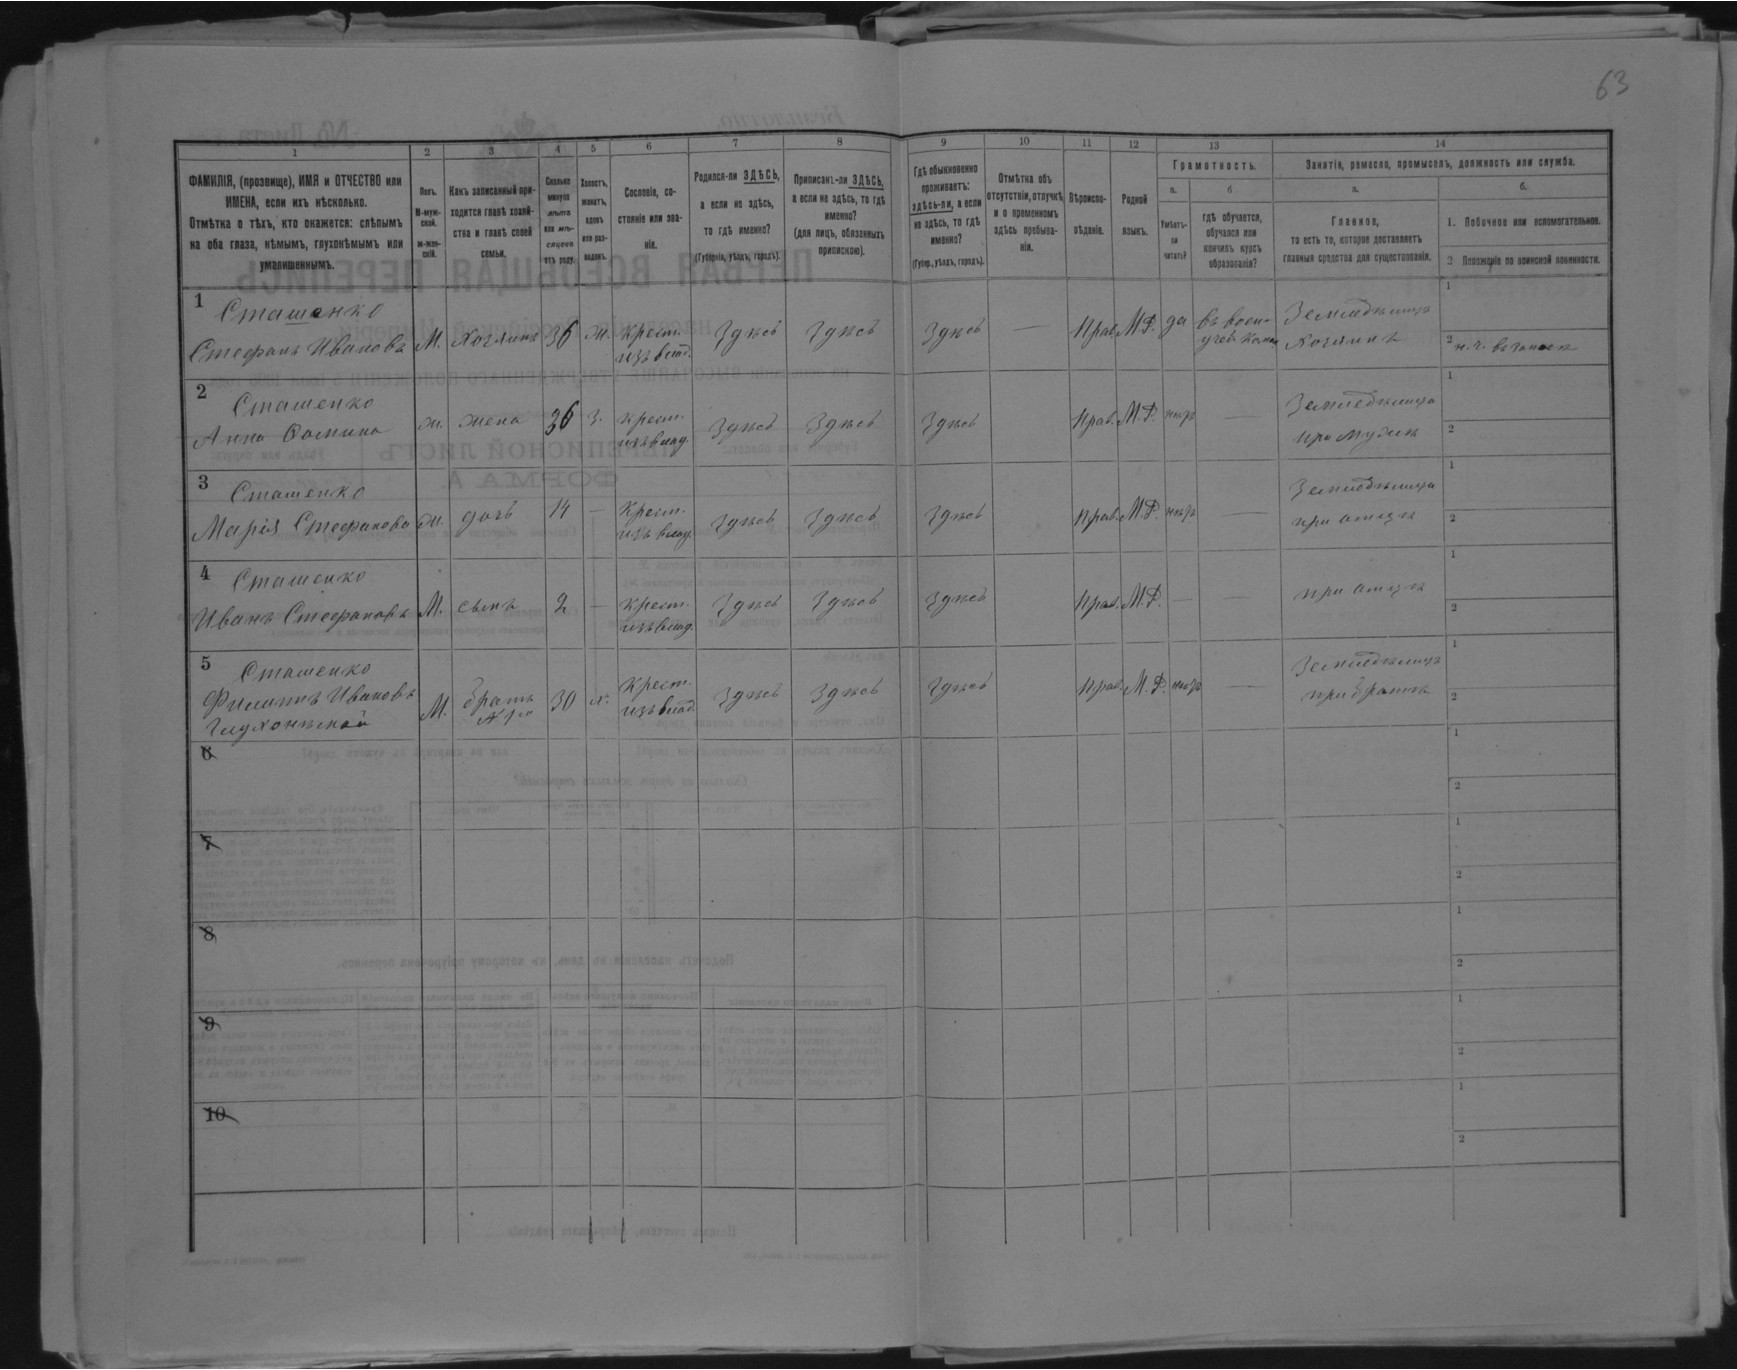 63
1 2 3 4 5 6 7 8 9 10 11 12 13 14
ФАМИЛІЯ, (прозвище), ИМЯ и ОТЧЕСТВО или
ИМЕНА, если ихъ нѣсколько.
Отмѣтка о тѣхъ, кто окажется: слѣпымъ
на оба глаза, нѣмымъ, глухонѣмымъ или
умалишеннымъ.
Полъ.
М-муж-
ской.
ж-жен-
скій.
Какъ записанный при-
ходится главѣ хозяй-
ства и главѣ своей
семьи.
Сколько
минуло
лѣтъ
или мѣ-
сяцевъ
отъ роду.
Холостъ,
женатъ,
вдовъ
или раз-
веденъ.
Сословіе, со-
стояніе или зва-
ніе.
Родился-ли ЗДѢСЬ,
а если не здѣсь,
то гдѣ именно?
(Губернія, уѣздъ, городъ).
Приписанъ-ли ЗДѢСЬ,
а если не здѣсь, то гдѣ
именно?
(для лицъ, обязанныхъ
припискою).
Гдѣ обыкновенно
проживаетъ:
здѣсь-ли, а если
не здѣсь, то гдѣ
именно?
(Губер., уѣздъ, городъ).
Отмѣтка объ
отсутствіи, отлучкѣ
и о временномъ
здѣсь пребыва-
ніи.
Вѣроиспо-
вѣданіе.
Родной
языкъ.
Грамотность.
а.
Умѣетъ-
ли
читать?
б
гдѣ обучается,
обучался или
кончилъ курсъ
образованія?
Занятіе, ремесло, промыселъ, должность или служба.
а.
Главное,
то есть то, которое доставляетъ
главныя средства для существованія.
б.
1. Побочное или вспомогательное.
2 Положеніе по воинской повинности.
1 Сташенко
Стефанъ Ивановъ М. Хозяинъ 36 ж. крест.
изъ влад. Здѣсь Здѣсь Здѣсь — Прав. М.Р. да въ воен-
учеб. Коман Земледѣлецъ
Хозяинъ 1
2 н. ч. въ запасѣ
2 Сташенко
Анна Фомина ж. жена 36 з. крест.
изъ влад. Здѣсь Здѣсь Здѣсь Прав. М.Р. нѣтъ — Земледѣлица
при мужѣ 1
2
3 Сташенко
Марія Стефанова ж. дочь 14 — Крест.
изъ влад. Здѣсь Здѣсь Здѣсь Прав. М.Р. нѣтъ — Земледѣлица
при отцѣ 1
2
4 Сташенко
Иванъ Стефановъ М. сынъ 2 — крест.
изъ влад. Здѣсь Здѣсь Здѣсь Прав. М.Р. — — при отцѣ 1
2
5 Сташенко
Филиппъ Ивановъ
Глухонѣмой М. братъ
№ 1го 30 х. Крест.
изъ влад. Здѣсь Здѣсь Здѣсь Прав. М.Р. нѣтъ — Земледѣлецъ
при братѣ 1
2
6 1
2
7 1
2
8 1
2
9 1
2
10 1
2